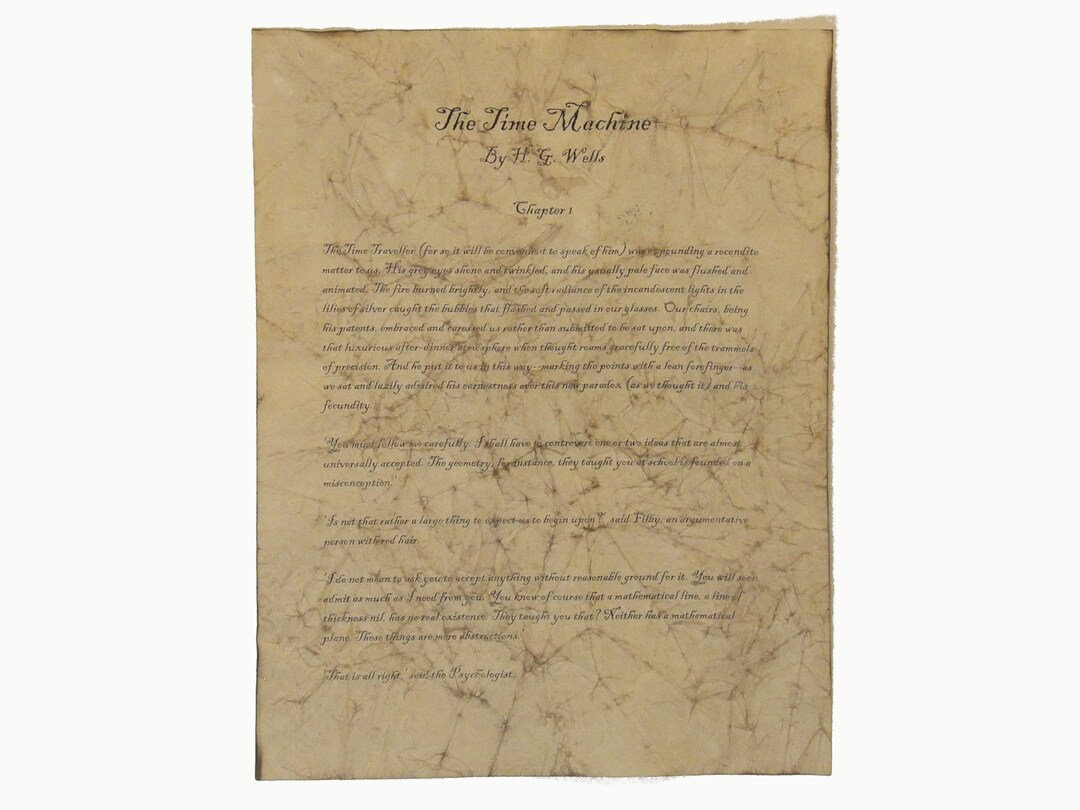 The Time Machine
By H. G. Wells
Chapter 1
The Time Traveller (for so it will be convenient to speak of him) was expounding a recondite
matter to us. His grey eyes shone and twinkled, and his usually pale face was flushed and
animated. The fire burned brightly, and the soft radiance of the incandescent lights in the
lilies of silver caught the bubbles that flashed and passed in our glasses. Our chairs, being
his patents, embraced and caressed us rather than submitted to be sat upon, and there was
that luxurious after-dinner atmosphere when thought roams gracefully free of the trammels
of precision. And he put it to us in this way--marking the points with a lean forefinger--as
we sat and lazily admired his earnestness over this new paradox (as we thought it) and his
fecundity.
'You must follow me carefully. I shall have to controvert one or two ideas that are almost
universally accepted. The geometry, for instance, they taught you at school is founded on a
misconception.'
'Is not that rather a large thing to expect us to begin upon?' said Filby, an argumentative
person with red hair.
'I do not mean to ask you to accept anything without reasonable ground for it. You will soon
admit as much as I need from you. You know of course that a mathematical line, a line of
thickness nil, has no real existence. They taught you that? Neither has a mathematical
plane. These things are mere abstractions.'
'That is all right,' said the Psychologist.